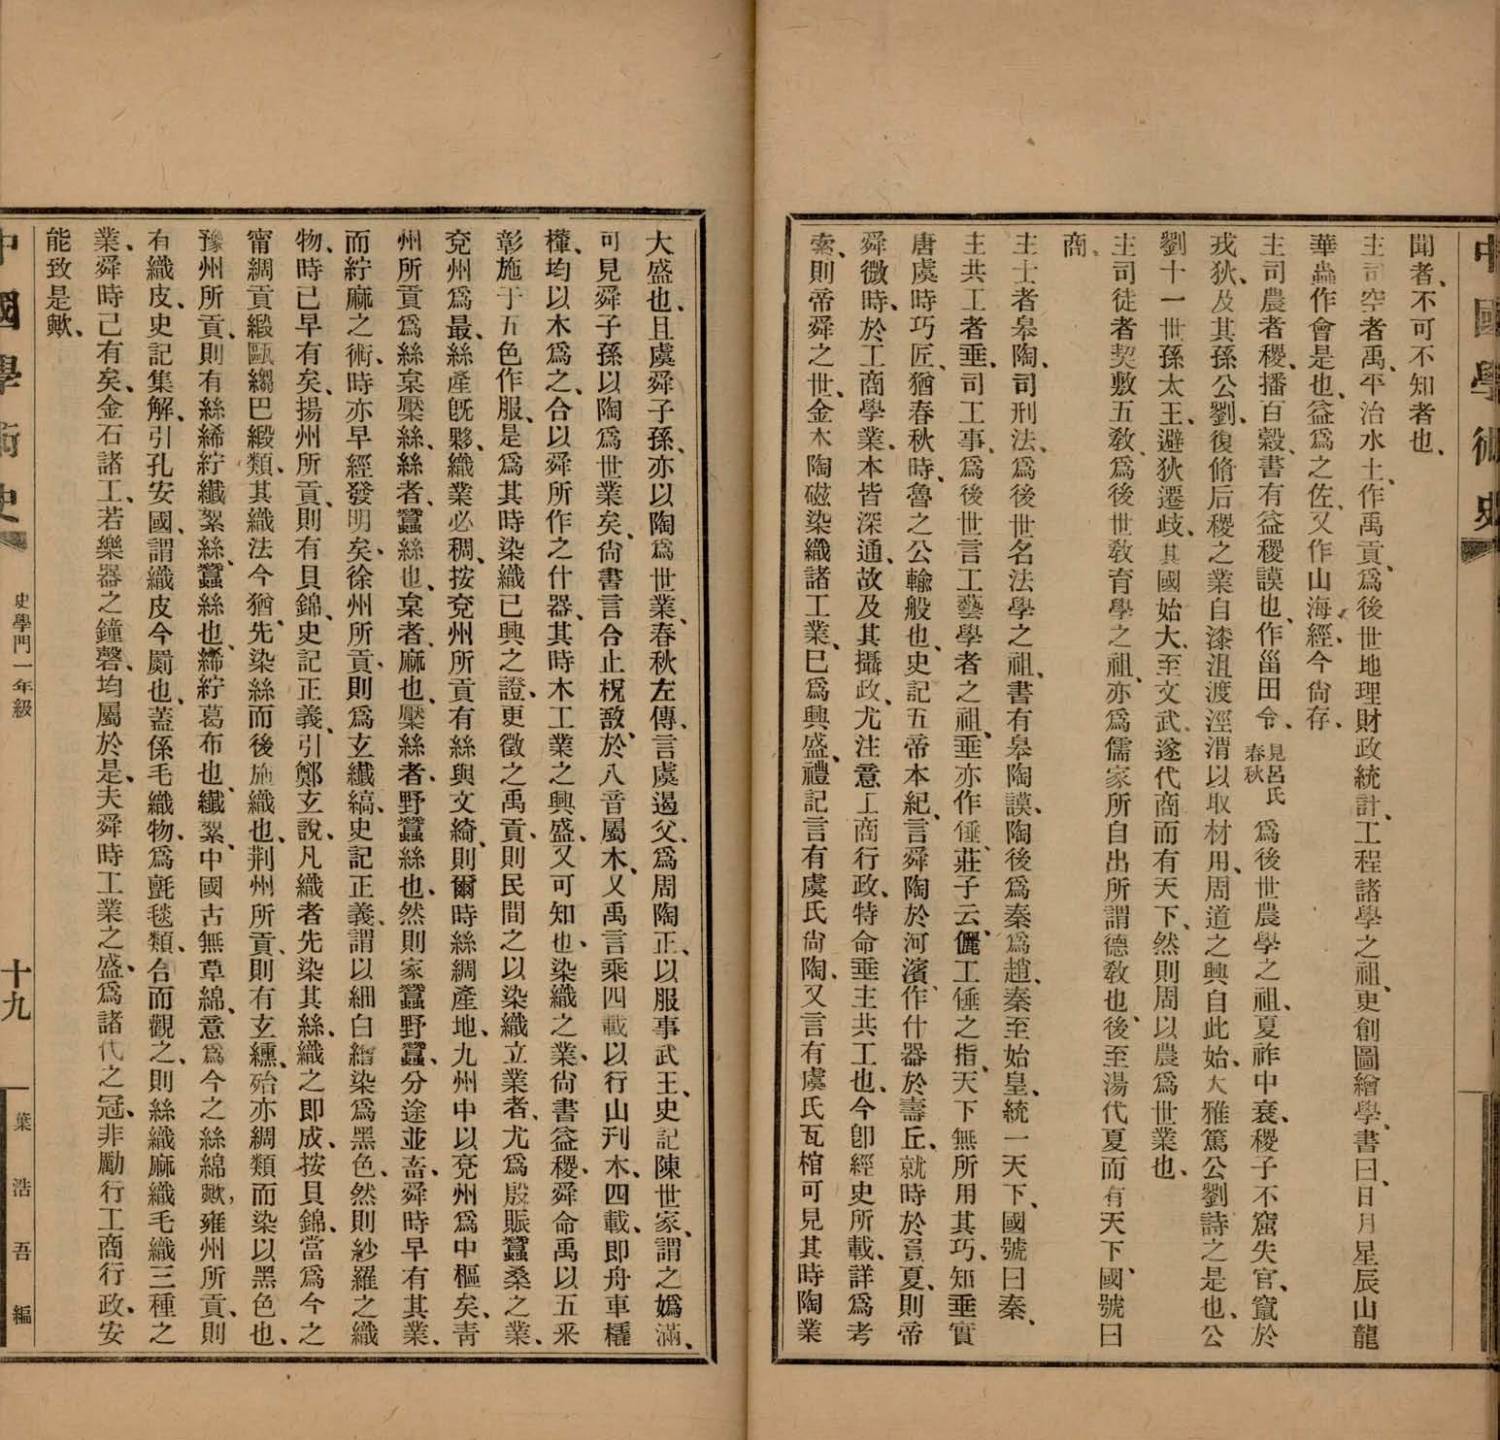 中國學術史
聞者、不可不知者也、
主司空者禹、平治水土、作禹貢、爲後世地理財政統計、工程諸學之祖、更創圖繪學、書曰、日月星辰山龍
華蟲作會是也、益爲之佐、又作山海經、今尙存、
主司農者稷、播百穀、書有益稷謨也、作甾田令、見呂氏春秋 爲後世農學之祖、夏祚中衰、稷子不窟失官、竄於
戎狄、及其孫公劉、復脩后稷之業、自漆沮渡涇渭以取材用、周道之興自此始、大雅篤公劉詩之是也、公
劉十一世孫太王、避狄遷歧、其國始大、至文武遂代商而有天下、然則周以農爲世業也、
主司徒者契、敷五敎、爲後世敎育學之祖、亦爲儒家所自出、所謂德敎也、後至湯代夏而有天下、國號曰
商、
主士者皋陶、司刑法、爲後世名法學之祖、書有皋陶謨、陶後爲秦爲趙、秦至始皇、統一天下、國號曰秦、
主共工者垂、司工事、爲後世言工藝學者之祖、垂亦作倕、莊子云、儷工倕之指、天下無所用其巧、知垂實
唐虞時巧匠、猶春秋時、魯之公輸般也、史記五帝本紀、言舜陶於河濱、作什器於壽丘、就時於負夏、則帝
舜微時、於工商學業、本皆深通、故及其攝政、尤注意工商行政、特命垂主共工也、今卽經史所載、詳爲考
索、則帝舜之世、金木陶磁染織諸工業、已爲興盛、禮記言有虞氏尙陶、又言有虞氏瓦棺、可見其時陶業
大盛也、且虞舜子孫、亦以陶爲世業、春秋左傳、言虞遏父、爲周陶正、以服事武王、史記陳世家、謂之嬀滿、
可見舜子孫以陶爲世業矣、尙書言合止柷敔、於八音屬木、又禹言乘四載以行山刊木、四載、即舟車橇
欙、均以木爲之、合以舜所作之什器、其時木工業之興盛、又可知也、染織之業、尙書益稷、舜命禹以五采
彰施于五色作服、是爲其時染織已興之證、更徵之禹貢、則民間之以染織立業者、尤爲殷賑、蠶桑之業、
兗州爲最、絲產旣夥、織業必稠、按兗州所貢有絲與文綺、則爾時絲綢產地、九州中以兗州爲中樞矣、靑
州所貢爲絲枲檿絲、絲者、蠶絲也、枲者、麻也、檿絲者、野蠶絲也、然則家蠶野蠶、分途並畜、舜時早有其業、
而紵麻之術、時亦早經發明矣、徐州所貢、則爲玄纖縞、史記正義、謂以細白繒染爲黑色、然則紗羅之織
物、時已早有矣、揚州所貢、則有貝錦、史記正義、引鄭玄說、凡織者先染其絲、織之即成、按貝錦、當爲今之
甯綢貢緞甌縐巴緞類、其織法今猶先染絲而後施織也、荆州所貢、則有玄纁、殆亦綢類而染以黑色也、
豫州所貢、則有絲絺紵纖絮、絲、蠶絲也、絺紵葛布也、纖絮、中國古無草綿、意爲今之絲綿歟、雍州所貢、則
有織皮、史記集解、引孔安國、謂織皮今罽也、蓋係毛織物、爲氈毯類、合而觀之、則絲織麻織毛織三種之
業、舜時已有矣、金石諸工、若樂器之鐘磬、均屬於是、夫舜時工業之盛、爲諸代之冠、非勵行工商行政、安
能致是歟、
中國學術史 史學門一年級 十九 葉浩吾編